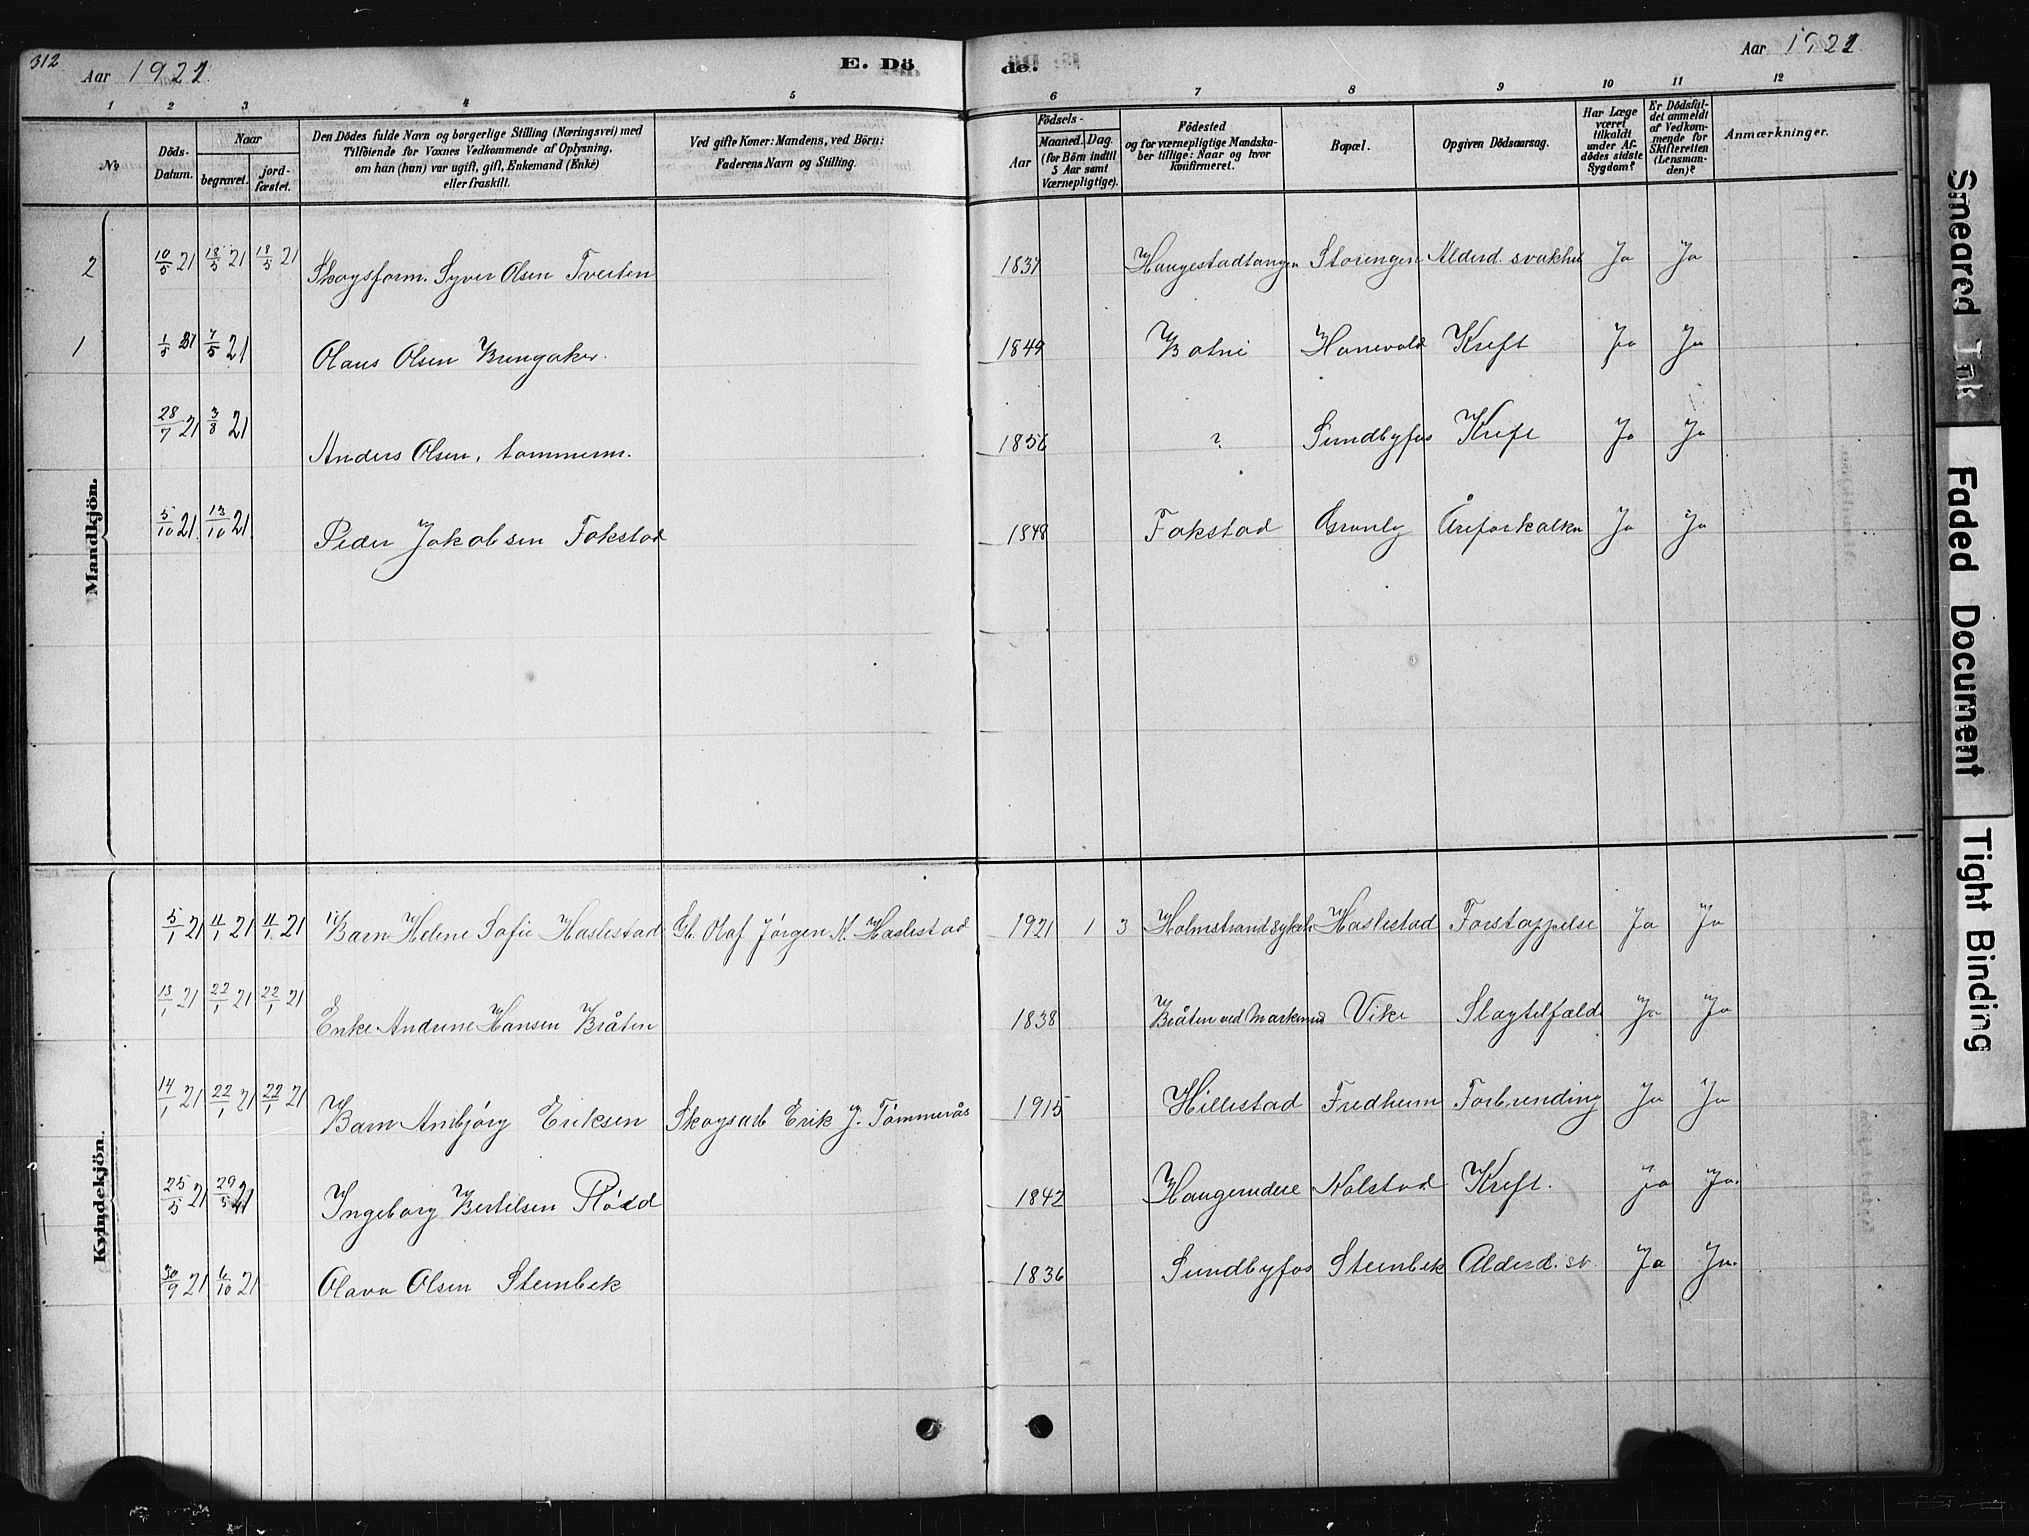 312
Aar 1921
E. Dö
de.
Aar 1921
1 2 3 4 5 6 7 8 9 10 11 12
No
Döds-
Datum.
Naar
begravet.
jord-
fæstet.
Den Dödes fulde Navn og borgerlige Stilling (Næringsvei) med
Tilföiende for Voxnes Vedkommende af Oplysning,
om han (hun) var ugift, gift, Enkemand (Enke)
eller fraskilt.
Ved gifte Koner: Mandens, ved Börn:
Faderens Navn og Stilling.
Födsels-
Aar
Maaned.
Dag.
(for Börn indtil
5 Aar samt
Værnepligtige).
Födested
og for værnepligtige Mandska-
ber tillige: Naar og hvor
Konfirmeret.
Bopæl.
Opgiven Dödsaarsag.
Har Læge
været
tilkaldt
under Af-
dödes sidste
Sygdom?
Er Dödsfal-
det anmeldt
af Vedkom-
mende for
Skifteretten
(Lensman-
den)?
Anmærkninger.
Mandkjön.
2 10/5 21 18/5 21 18/5 21 Skogsform. Syver Olsen Tveiten 1837 Haugestadtangen Storengen Alderd. svakhet Ja Ja
1 1/5 21 7/5 21 Olaus Olsen Bungaker. 1849 Botne Hanevold Kreft Ja Ja
28/7 21 3/8 21 Anders Olsen, tømmerm. 1856 ? Sundbyfos Kreft Ja Ja
5/10 21 13/10 21 Peder Jakobsen Fokstad 1848 Fokstad Grønly Åreforkalkn Ja Ja
Kvindekjön.
5/1 21 11/1 21 11/1 21 Barn Helene Sofie Haslestad Gb. Olaf Jørgen K. Haslestad 1921 1 3 Holmestrand sykeh. Haslestad Forstoppelse Ja Ja
13/1 21 22/1 21 22/1 21 Enke Andrine Hansen Bråten 1838 Bråten ved Markerud Vike Slagtilfælde Ja Ja
14/1 21 22/1 21 22/1 21 Barn Anbjørg Eriksen Skogsarb Erik J. Tømmerås 1915 Hillestad Fredheim Forbrending Ja Ja
25/5 21 29/5 21 Ingeborg Bertelsen Rødd 1842 Haugenedere Kolstad Kreft. Ja Ja.
30/9 21 6/10 21 Olava Olsen Stenbek 1836 Sundbyfos Stenbek Alderd. sv. Ja Ja.
Smeared Ink
Faded Document
Tight Binding